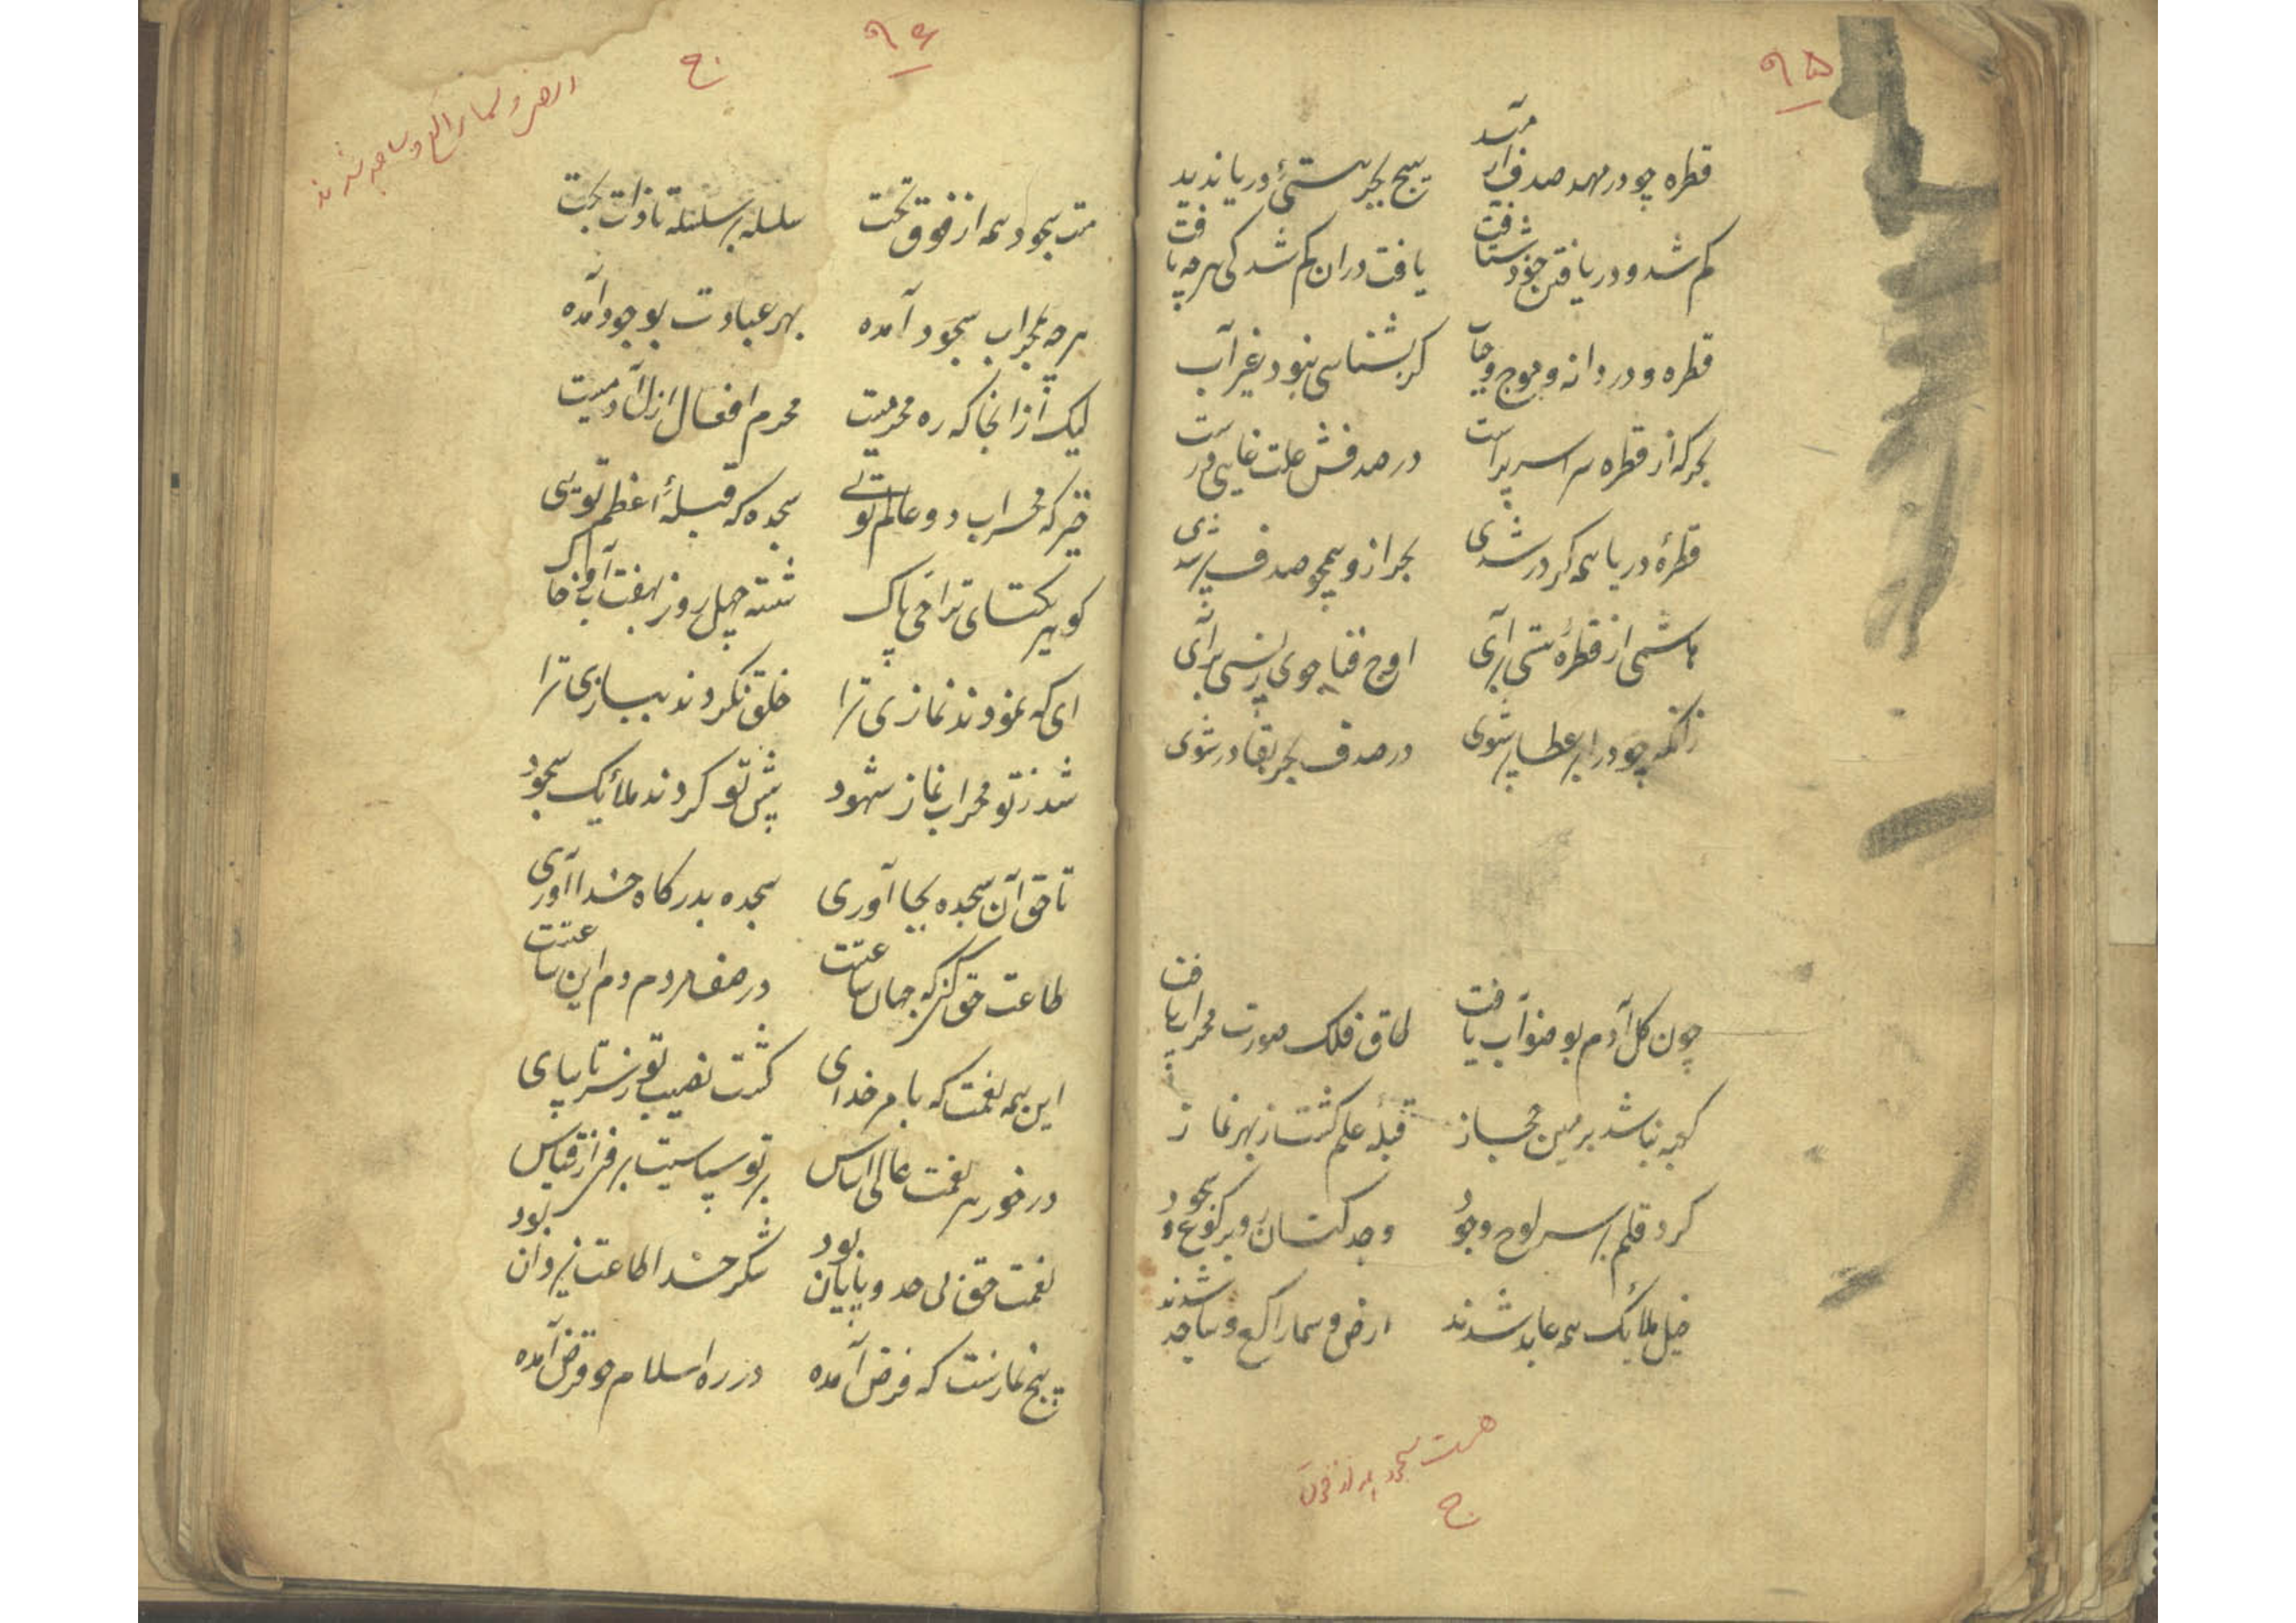 ۹۵
قطره چو در مهد صدف آرمید هیچ بجز هستئ دریا ندید
کم شد و در یافتن خود شتافت یافت در ان کم شدکی هرچه یافت
قطره و دردانه و موج و حباب کر بشناسی نبود غیر آب
بحر که از قطره سراسر پر است در صدفش علت غایی در است
قطرهٔ دریا همه کر در شدی بحر ازو همچو صدف پر شدی
هاشمی از قطرهٔ هستی برآی اوج فنا جوی ز پستی برآی
زانکه چو در ابر عطا پر شوی در صدف بحر بقا در شوی
چون کل آدم بوضو آب یافت طاق فلک صورت محراب یافت
کعبه نباشد برمین مجاز قبلهٔ علم کشت ز بهر نماز
کرد قلم بر سر لوح وجود وجد کنان رو برکوع و سجود
خیل ملایک همه عابد شدند ارض و سما راکع و ساجد شدند
هست سجود همه از فوق
ج
۹۶
ج
ارض و سما راکع و ساجد شدند
هست سجود همه از فوق تحت سلسله بر سلسله تا ذات بحت
هرچه بمحراب سجود آمده بهر عبادت بوجود آمده
لیک از انجا که ره محرمیت محرم افعال ازل آدمیست
خیز که محراب دو عالم تویی سجده که قبلهٔ اعظم تویی
کوهر یکتای ترا حی پاک شسته چهل روز بهفت آب و خاک
ای که نمودند نمازی ترا خلق نکردند ببازی ترا
شد ز تو محراب نماز شهود پیش تو کردند ملائک سجود
تا حق آن سجده بجا آوری سجده بدرکاه خدا آوری
طاعت حق کن که جهان ساعتست در صف مردم دم این ساعتست
این همه نعمت که بامر خدای کشت نصیب تو ز سر تا بپای
در خور هر نعمت عالی اساس بر تو سپاسیست برون از قیاس
نعمت حق بی حد و پایان بود شکر خدا طاعت یزدان بود
پنج نمازست که فرض آمده در ره اسلام چو قرض آمده